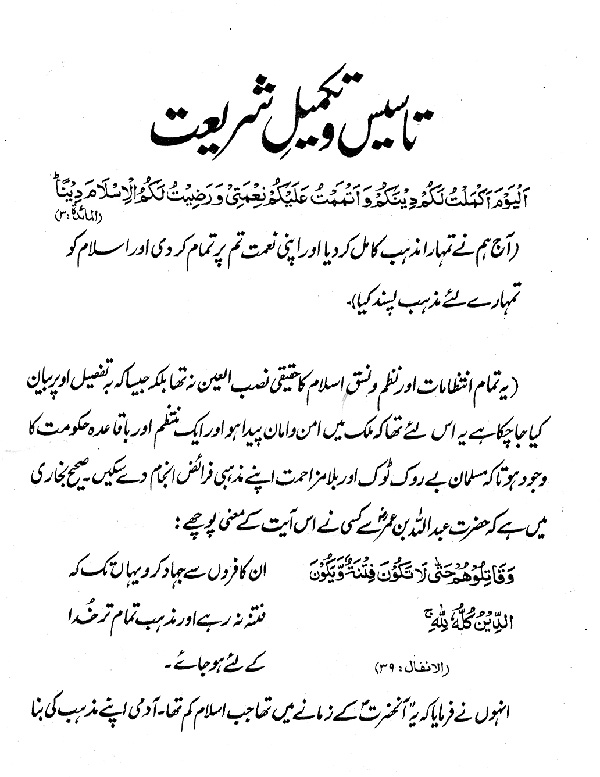 تاسیس و تکمیلِ شریعت
اَلْیَوْمَ اَکْمَلْتُ لَکُمْ دِیْنَکُمْ وَ اَتْمَمْتُ عَلَیْکُمْ نِعْمَتِیْ وَ رَضِیْتُ لَکُمُ الْاِسْلَامَ دِیْنًا ط
(المائدہ: ۳)
(آج ہم نے تمہارا مذہب کامل کر دیا اور اپنی نعمت تم پر تمام کر دی اور اسلام کو
تمہارے لئے مذہب پسند کیا)۔
(یہ تمام انتظامات اور نظم و نسق اسلام کا حقیقی نصب العین نہ تھا بلکہ جیسا کہ بہ تفصیل اوپر بیان
کیا جا چکا ہے یہ اس لئے تھا کہ ملک میں امن و امان پیدا ہو اور ایک منتظم اور باقاعدہ حکومت کا
وجود ہو تاکہ مسلمان بے روک ٹوک اور بلا مزاحمت اپنے مذہبی فرائض انجام دے سکیں صحیح بخاری
میں ہے کہ حضرت عبداللہ بن عمرؓ سے کسی نے اس آیت کے معنی پوچھے:
وَ قَاتِلُوْهُمْ حَتّٰی لَا تَکُوْنَ فِتْنَةٌ وَّ یَکُوْنَ ان کافروں سے جہاد کرو یہاں تک کہ
الدِّیْنُ کُلُّهٗ لِلّٰهِ ج فتنہ نہ رہے اور مذہب تمام تر خُدا
(الانفال: ۳۹) کے لئے ہو جائے۔
انہوں نے فرمایا کہ یہ آنحضرتؐ کے زمانے میں تھا جب اسلام کم تھا۔ آدمی اپنے مذہب کی بنا